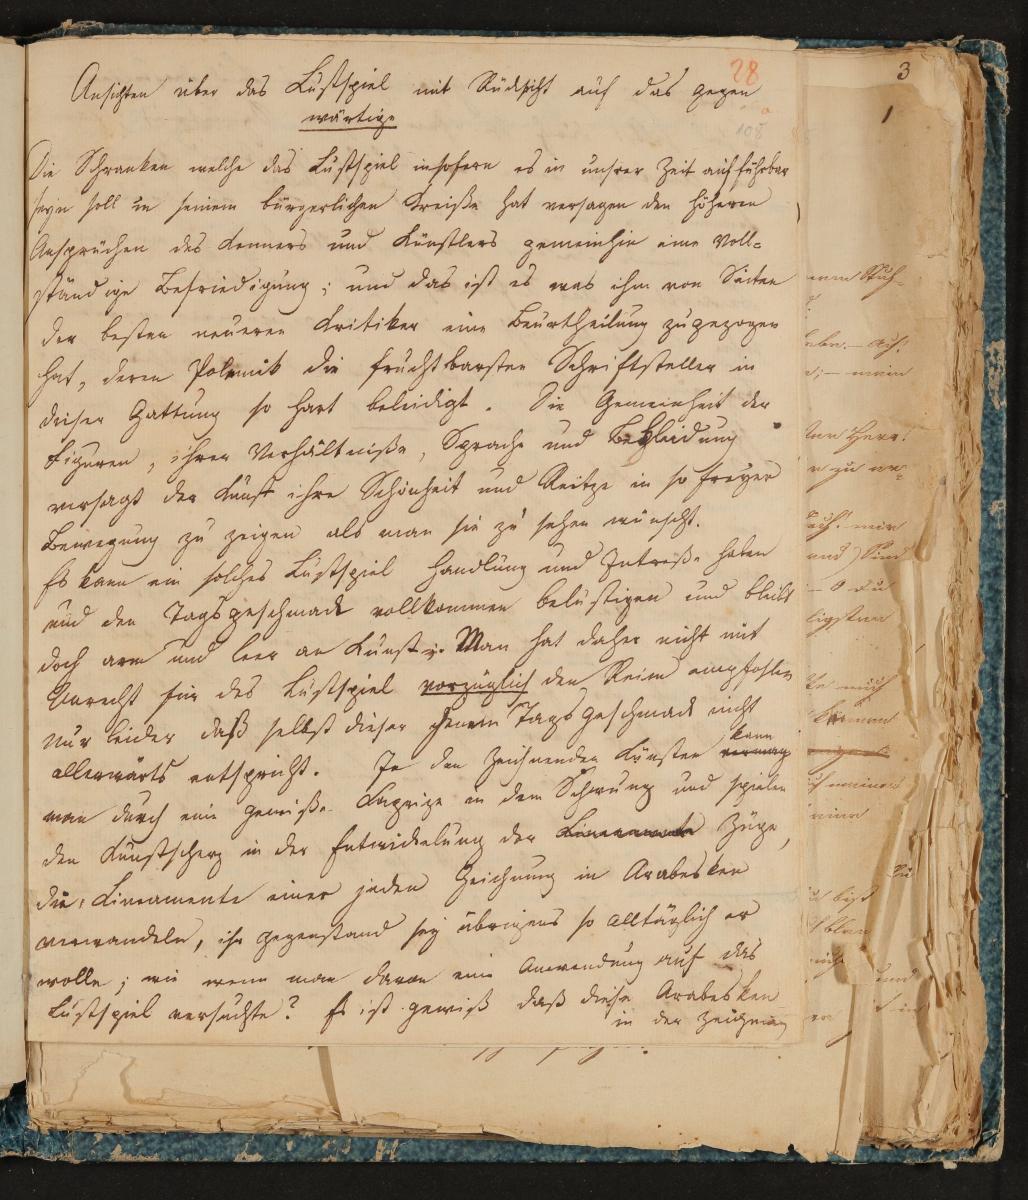 28
3
1
108
Ansichten über das Lustspiel mit Rücksicht auf das gegen
wärtige
Die Schranken welche das Lustspiel insofern es in unsrer Zeit aufführbar
seyn soll in seinem bürgerlichen Kreiße hat versagen den höheren
Ansprüchen des Kenners und Künstlers gemeinhin eine Voll=
ständige Befriedigung; und das ist es was ihm von Seiten
der besten neueren Kritiker eine Beurtheilung zugezogen
hat, deren Polemik die fruchtbarsten Schriftsteller in
dieser Gattung so hart beleidigt. Die Gemeinheit der
Figuren, ihrer Verhältniße, Sprache und Bekleidung
versagt der Kunst ihre Schönheit und Reitze in so freyer
Bewegung zu zeigen als man sie zu sehen wünscht.
Es kann ein solches Lustspiel Handlung und Intreße haben
und den Tagsgeschmack vollkommen belustigen und bleibt
doch arm und leer an Kunst. Man hat daher nicht mit
Unrecht für das Lustspiel vorzüglich den Reim empfohlen
nur leider daß selbst dieser jenem Tagsgeschmack nicht
allerwärts entspricht. In den Zeichnenden Künsten vermag kann
man durch eine gewiße Caprize in dem Schwung und spielen
den Kunstscherz in der Entwickelung der Lineamente Züge,
die Lineamente einer jeden Zeichnung in Arabesken
verwandeln, ihr Gegenstand sey übrigens so alltäglich er
wolle; wie wenn man davon eine Anwendung auf das
Lustspiel versuchte? Es ist gewiß daß diese Arabesken
in der Zeichnung